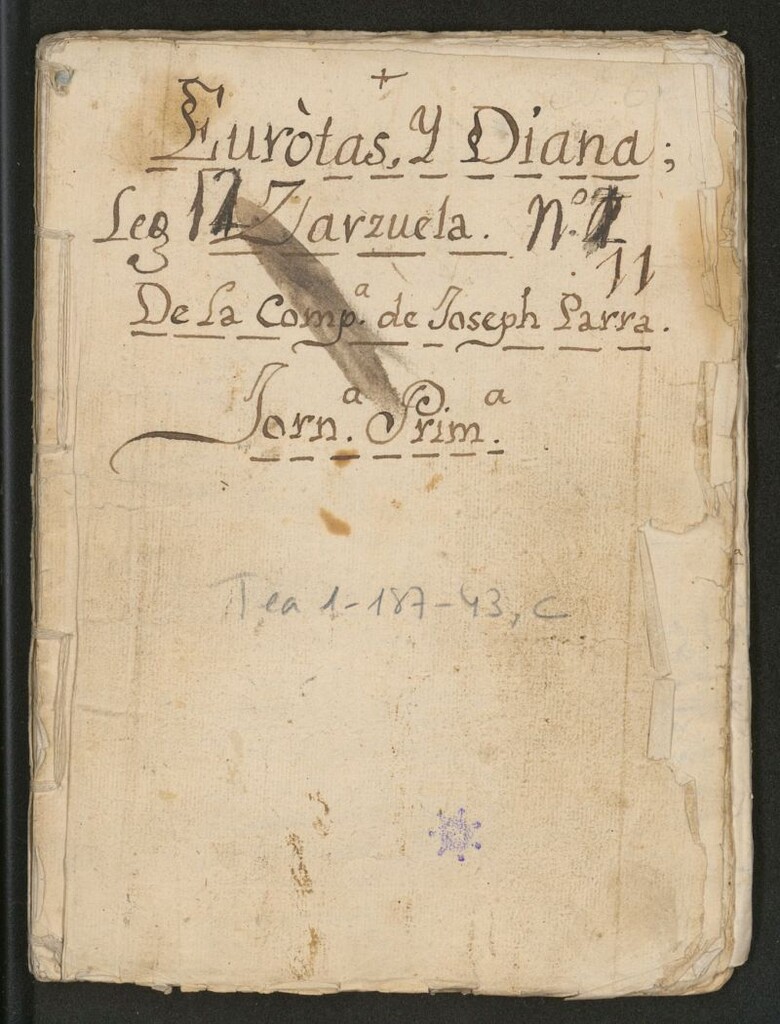 +
Euròtas, Y Diana;
Leg 17 Zarzuela. N.º
11
De la Comp.ª de Joseph Parra.
Jorn.ª Prim.ª
Tea 1-187-43, C